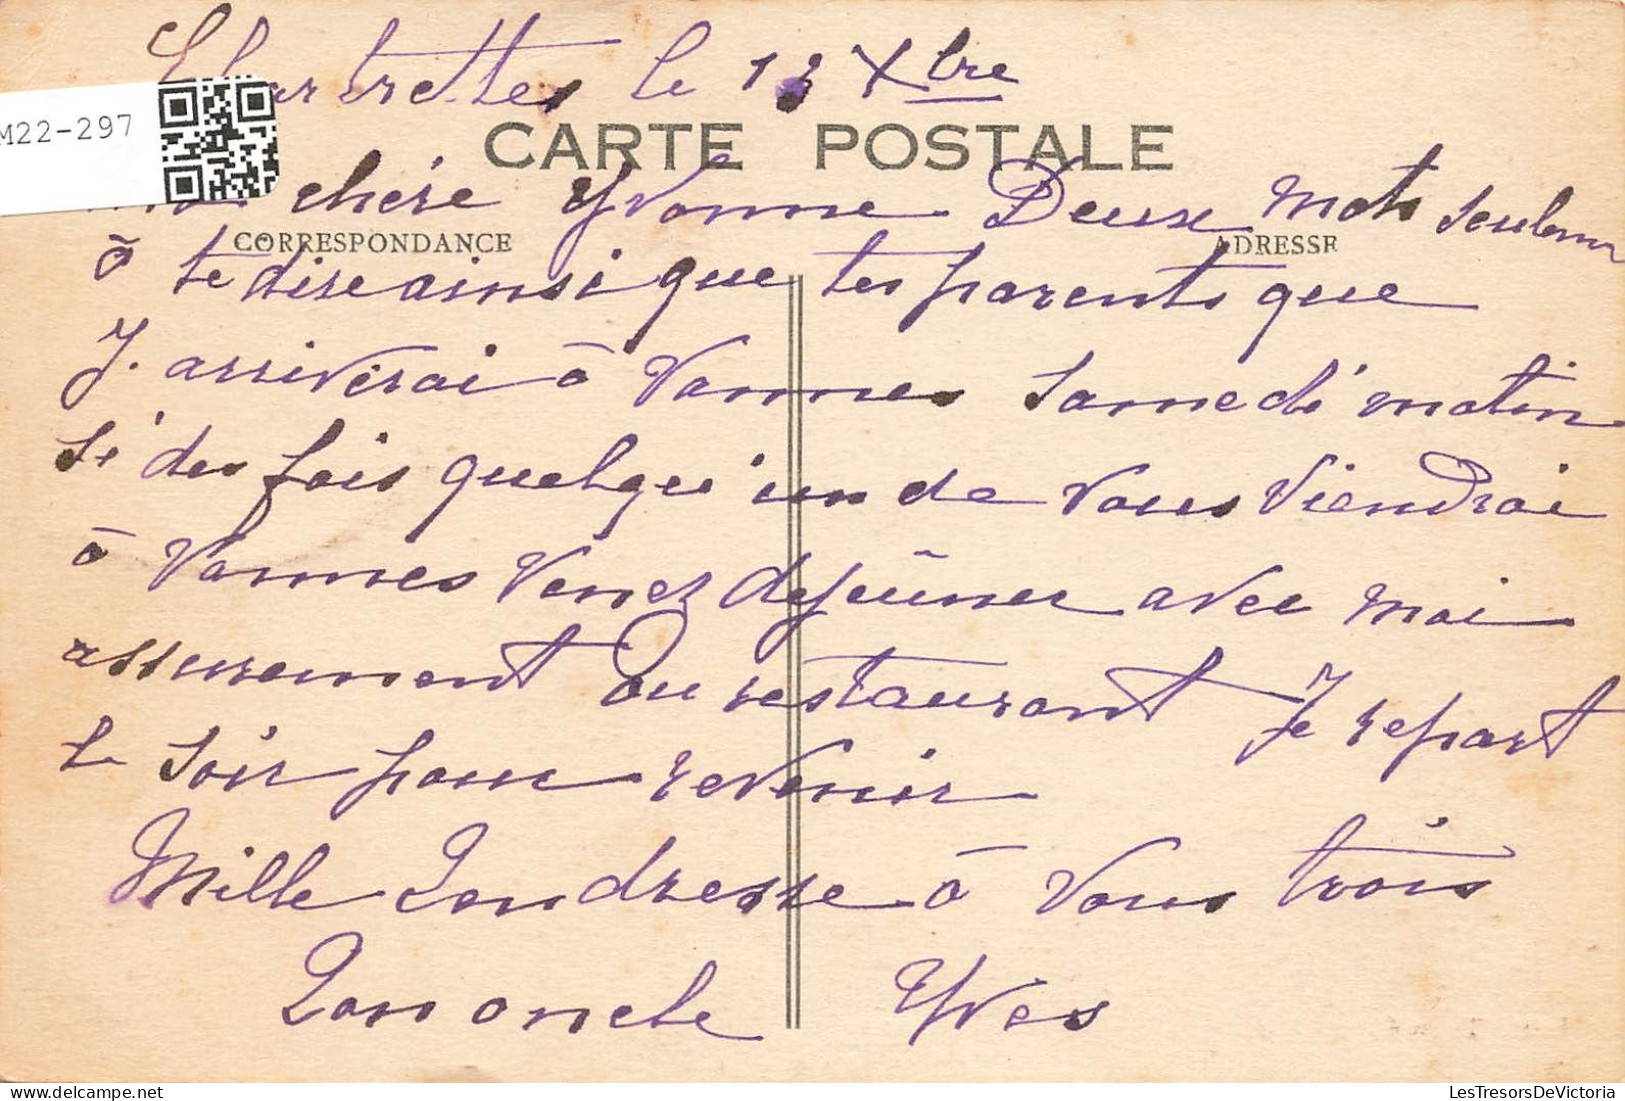 Chartrettes le 13 Xbre
M22-297
CARTE POSTALE
Ma chére Yvonne Deux mots seulem
CORRESPONDANCE
ADRESSE
à te dire ainsi que tes parents que
J. arriverai à Vannes Samedi matin
si des fois quelqu'un de vous viendrai
à Vannes venez dejeûner avec moi
assurement Au restaurant Je repart
le soir pour revenir
Mille Tendresse à vous trois
Ton oncle Yves
LesTresorsDeVictoria